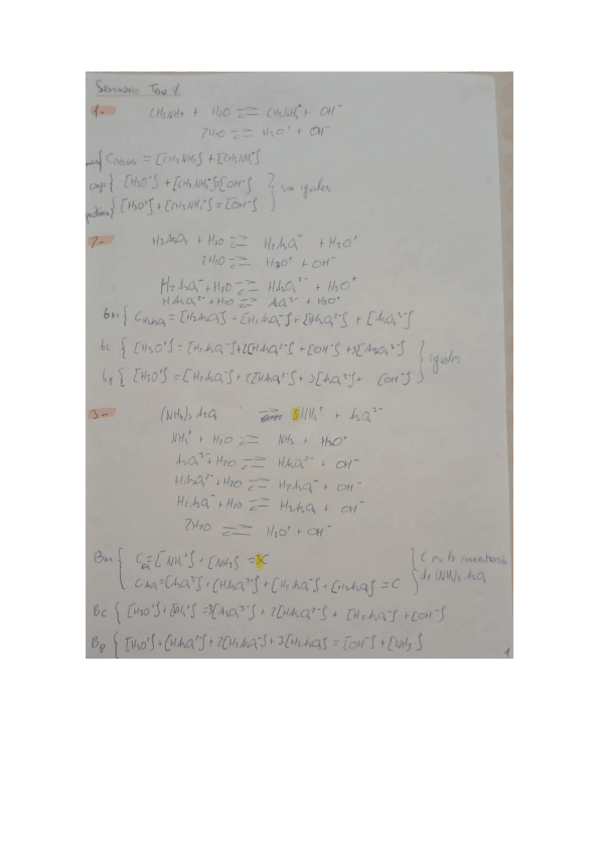 Seminario Tema 2
1- CH3NH2 + H2O ⇌ CH3NH3⁺ + OH⁻
2H2O ⇌ H3O⁺ + OH⁻
= [CH3NH2] + [CH3NH3⁺]
[H3O⁺] + [CH3NH3⁺] = [OH⁻]
[H3O⁺] + [CH3NH3⁺] = [OH⁻]
} son iguales
2- H3AsO4 + H2O ⇌ H2AsO4⁻ + H3O⁺
2H2O ⇌ H3O⁺ + OH⁻
H2AsO4⁻ + H2O ⇌ HAsO4²⁻ + H3O⁺
+ H2O ⇌ + H3O⁺
bm { C = [H3AsO4] + [H2AsO4⁻] + [HAsO4²⁻] + [AsO4³⁻]
bc { [H3O⁺] = [H2AsO4⁻] + 2[HAsO4²⁻] + [OH⁻] + 3[AsO4³⁻]
bp { [H3O⁺] = [H2AsO4⁻] + 2[HAsO4²⁻] + 3[AsO4³⁻] + [OH⁻]
} iguales
3- (NH4)3 AsO4 3NH4⁺ + AsO4³⁻
NH4⁺ + H2O ⇌ NH3 + H3O⁺
AsO4³⁻ + H2O ⇌ HAsO4²⁻ + OH⁻
HAsO4²⁻ + H2O ⇌ H2AsO4⁻ + OH⁻
H2AsO4⁻ + H2O ⇌ H3AsO4 + OH⁻
2H2O ⇌ H3O⁺ + OH⁻
Bm { = [NH4⁺] + [NH3] = 3C
= [AsO4³⁻] + [HAsO4²⁻] + [H2AsO4⁻] + [H3AsO4] = C
} C es la concentración
de (NH4)3 AsO4
Bc { [H3O⁺] + [NH4⁺] = 3[AsO4³⁻] + 2[HAsO4²⁻] + [H2AsO4⁻] + [OH⁻]
Bp { [H3O⁺] + [HAsO4²⁻] + 2[H2AsO4⁻] + 3[H3AsO4] = [OH⁻] + [NH3]
1